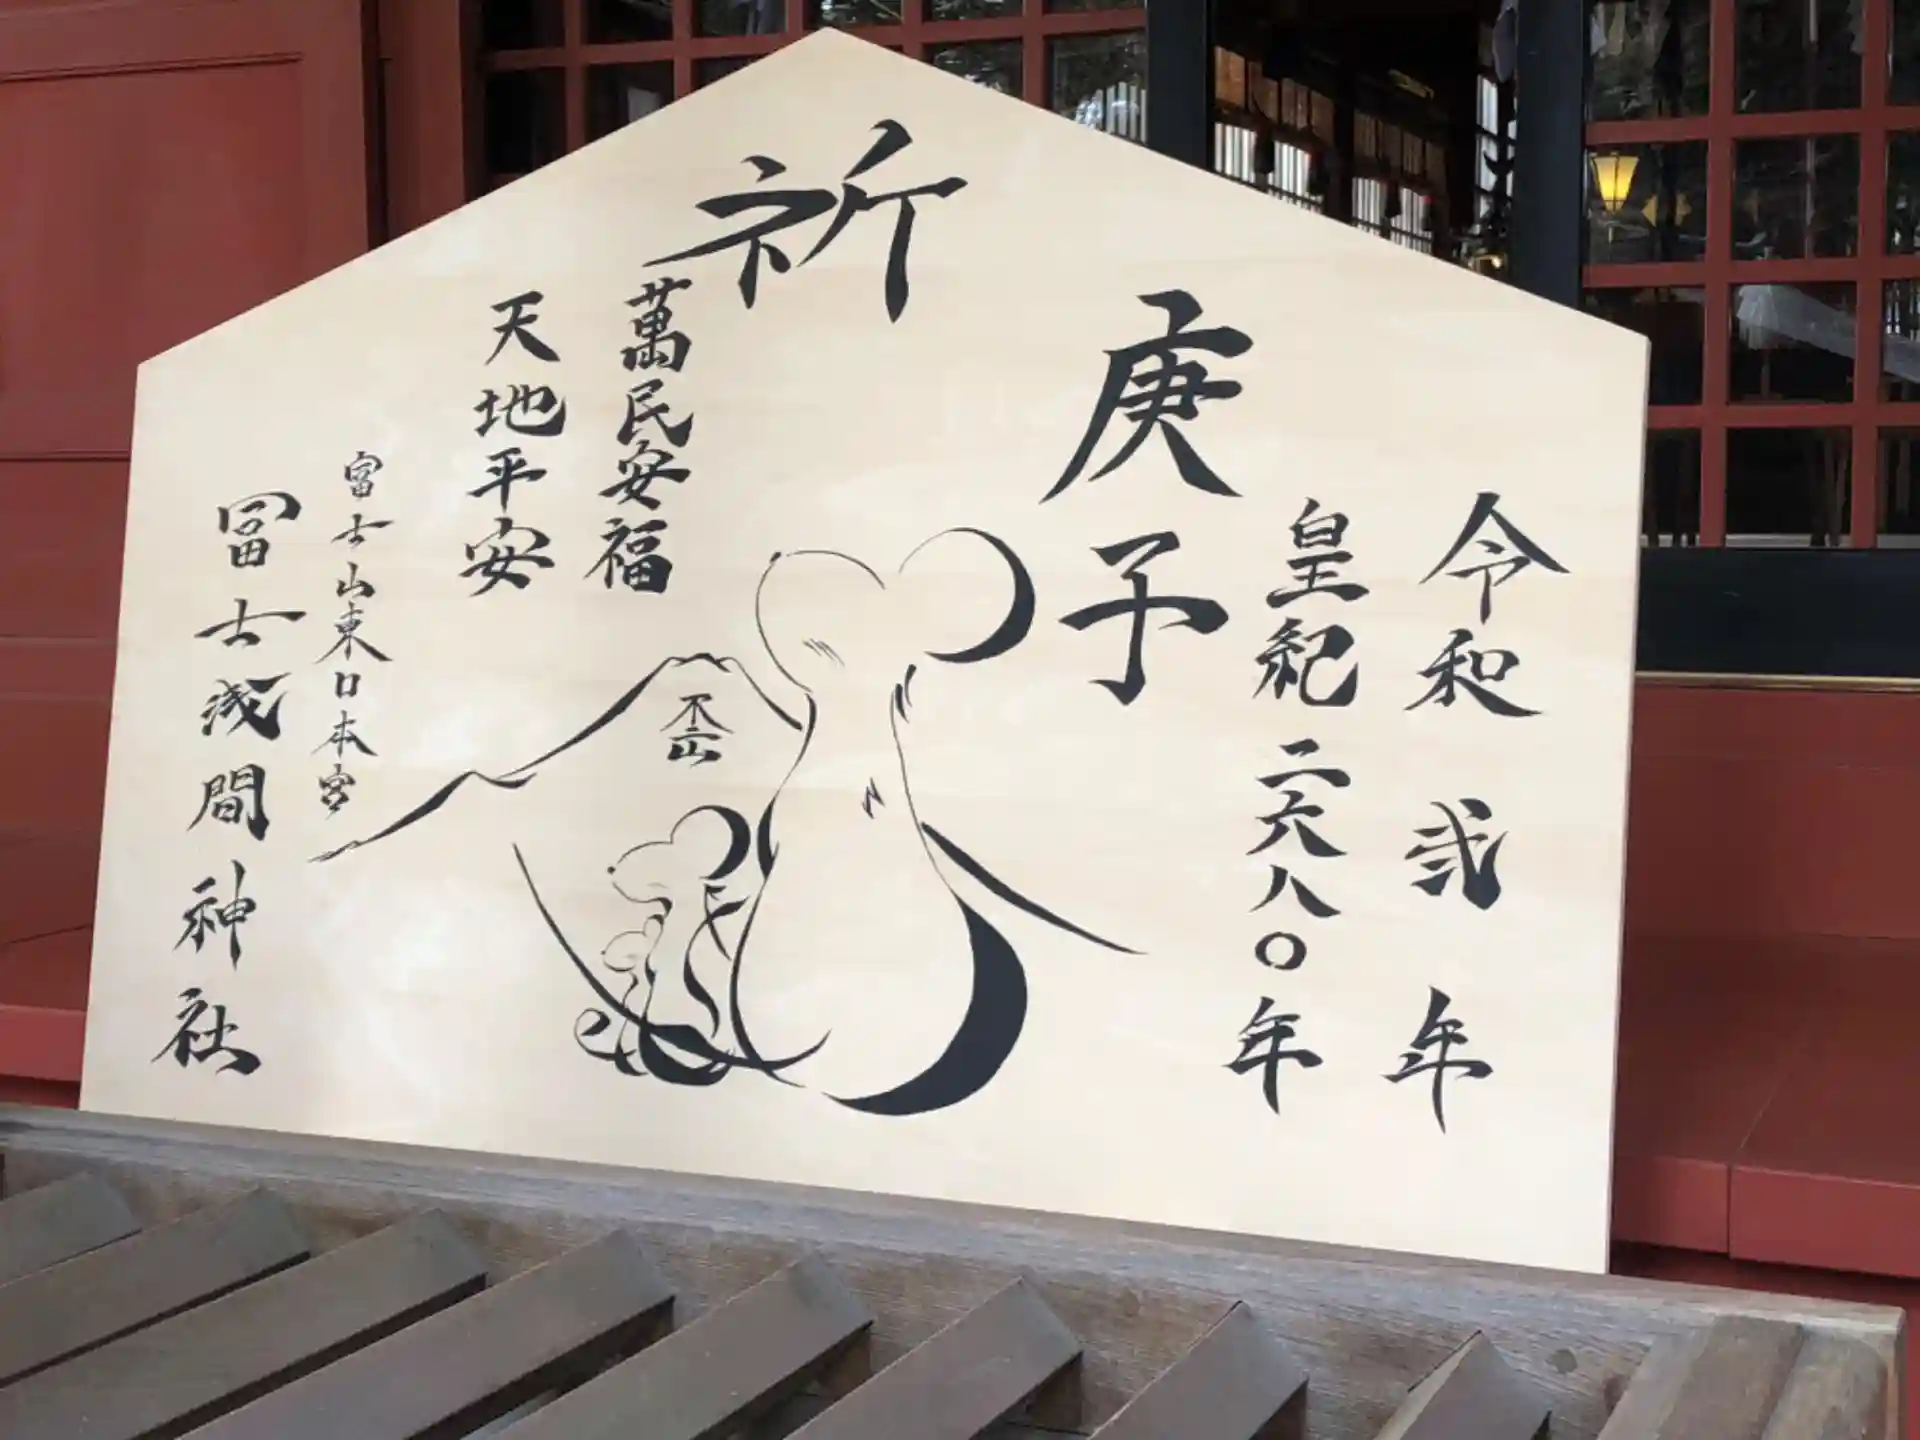 令和弐年
皇紀二六八〇年
庚子
祈
萬民安福
天地平安
富士山東口本宮
冨士浅間神社